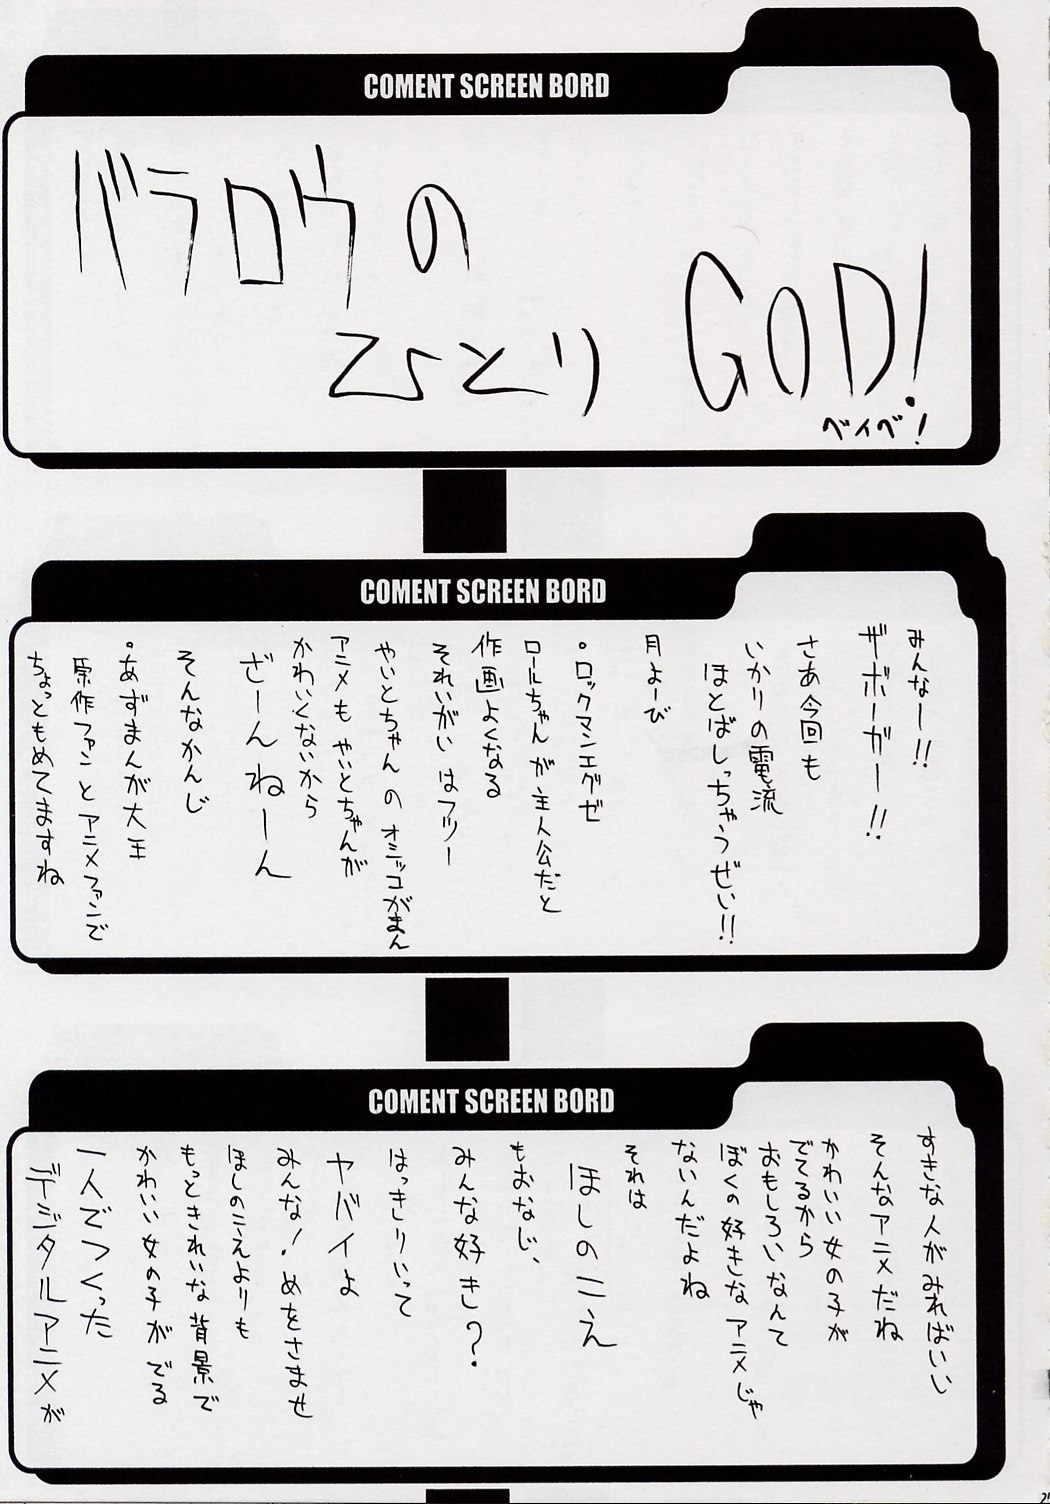 COMENT SCREEN BORD
バラロウの
ひとり
GOD!
ベイベ!
COMENT SCREEN BORD
みんなー!!
ザボーガー!!
さあ今回も
いかりの電流
ほとばしっちゃうぜい!!
月よーび
・ロックマンエグゼ
ロールちゃんが主人公だと
作画よくなる
それいがいはフツー
やいとちゃんのオシッコがまん
アニメもやいとちゃんが
かわいくないから
ざーんねーん
そんなかんじ
・あずまんが大王
原作ファンとアニメファンで
ちょっともめてますね
COMENT SCREEN BORD
すきな人がみればいい
そんなアニメだね
かわいい女の子が
でてるから
おもしろいなんて
ぼくの好きなアニメじゃ
ないんだよね
それは
ほしのこえ
もおなじ、
みんな好き?
はっきりいって
ヤバイよ
みんな!めをさませ
ほしのこえよりも
もっときれいな背景で
かわいい女の子がでる
一人でつくった
デジタルアニメが